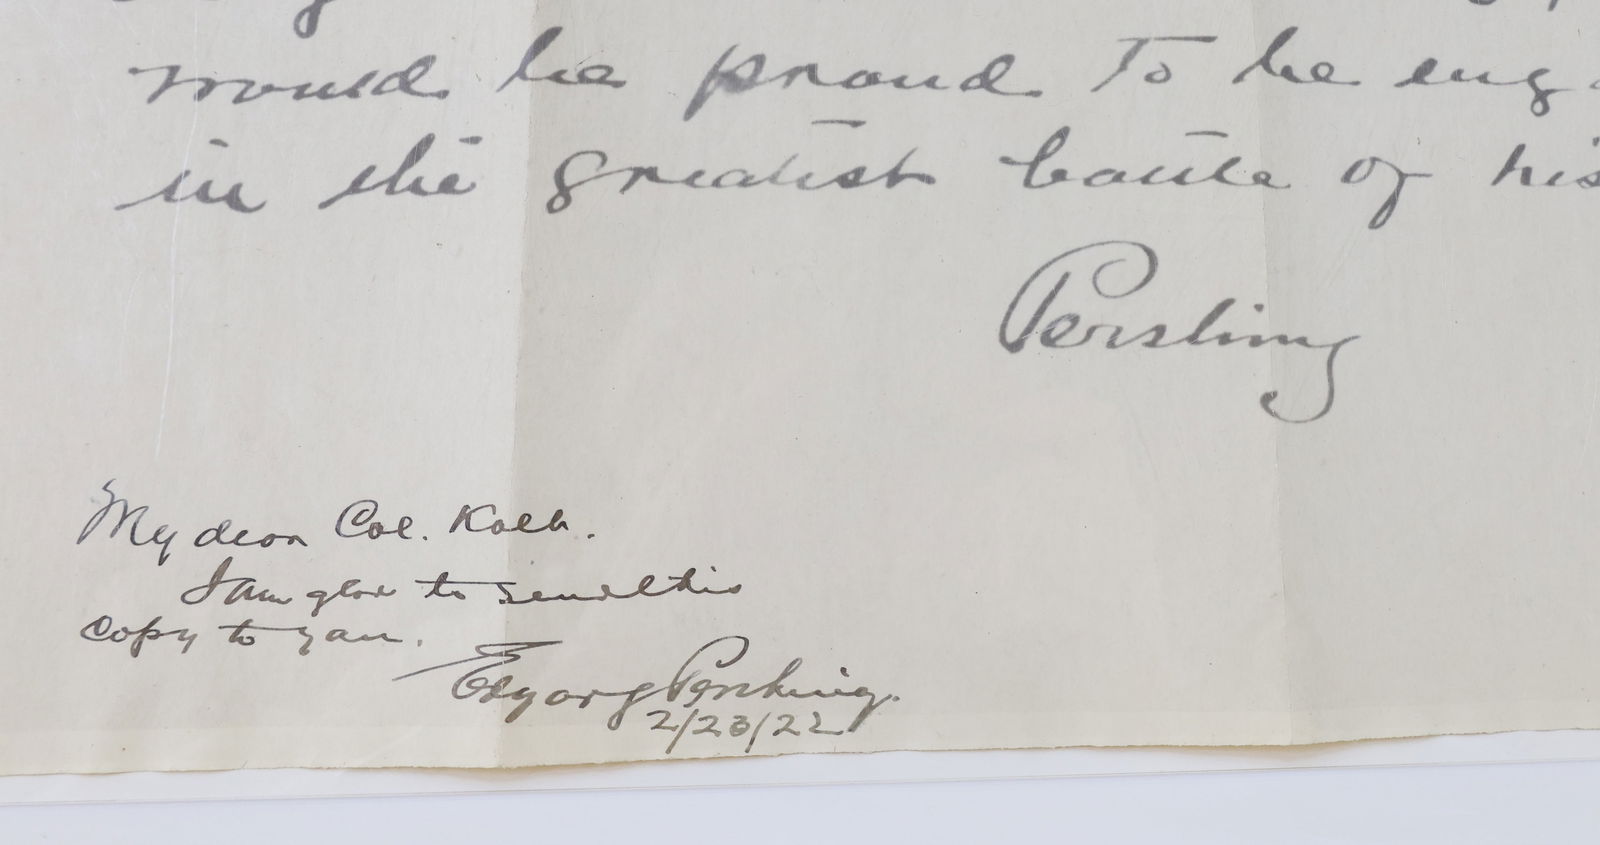 would be proud to be eng
in the greatest battle of his
Pershing
My dear Col. Kolb.
I am glad to send this
copy to you.
Pershing.
2/23/22